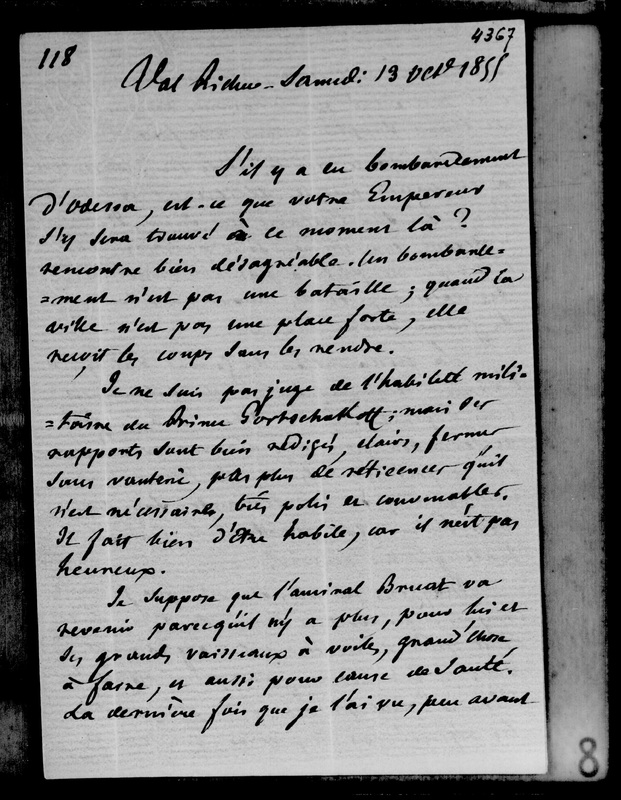 118
4367
Val Richer - Samedi 13 Octe 1855
S'il y a eu bombardement
d'Odessa, est-ce que votre Empereur
s'y sera trouvé à ce moment là ?
rencontre bien désagréable. Un bombarde=
=ment n'est pas une bataille ; quand la
ville n'est pas une place forte, elle
reçoit les coups sans les rendre.
Je ne suis pas juge de l'habileté mili=
=taire du Prince Gortschakoff ; mais ses
rapports sont bien rédigés, clairs, fermes
sans vanterie, pas plus de réticences qu'il
n'est nécessaire, très polis et convenables.
Il fait bien d'être habile, car il n'est pas
heureux.
Je suppose que l'amiral Bruat va
revenir parcequ'il n'y a plus, pour lui et
ses grands vaisseaux à voiles, grand'chose
à faire, et aussi pour cause de santé.
La dernière fois que je l'ai vu, peu avant
8